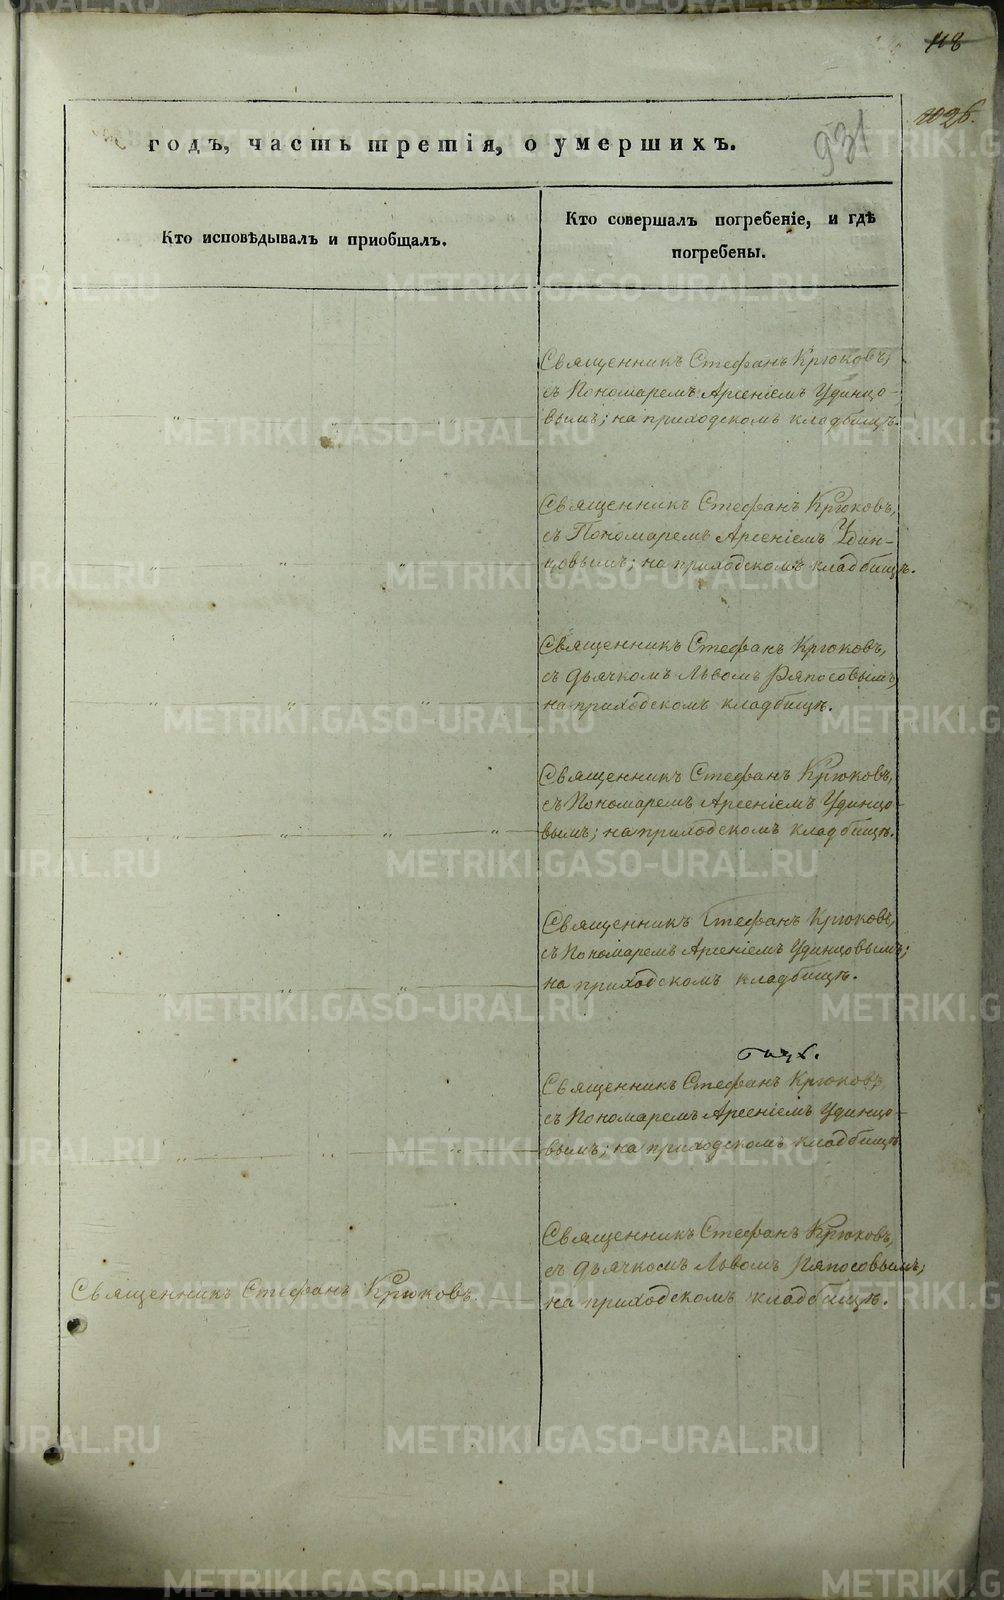 118
1026.
931
годъ, часть третія, о умершихъ.
Кто исповѣдывалъ и приобщалъ.
Кто совершалъ погребеніе, и гдѣ
погребены.
Священникъ Стефанъ Крюковъ,
съ Пономаремъ Арсеніемъ Удинцо-
вымъ; на приходскомъ кладбищѣ.
Священникъ Стефанъ Крюковъ,
съ Пономаремъ Арсеніемъ Удин-
цовымъ; на приходскомъ кладбищѣ.
Священникъ Стефанъ Крюковъ,
съ дьячкомъ Львомъ Ряпосовымъ,
на приходскомъ кладбищѣ.
Священникъ Стефанъ Крюковъ,
съ Пономаремъ Арсеніемъ Удинцо-
вымъ; на приходскомъ кладбищѣ.
Священникъ Стефанъ Крюковъ,
съ Пономаремъ Арсеніемъ Удинцовымъ;
на приходскомъ кладбищѣ.
Священникъ Стефанъ Крюковъ,
съ Пономаремъ Арсеніемъ Удинцо-
вымъ; на приходскомъ кладбищѣ.
Священникъ Стефанъ Крюковъ.
Священникъ Стефанъ Крюковъ,
съ дьячкомъ Львомъ Ряпосовымъ;
на приходскомъ кладбищѣ.
METRIKI.GASO-URAL.RU